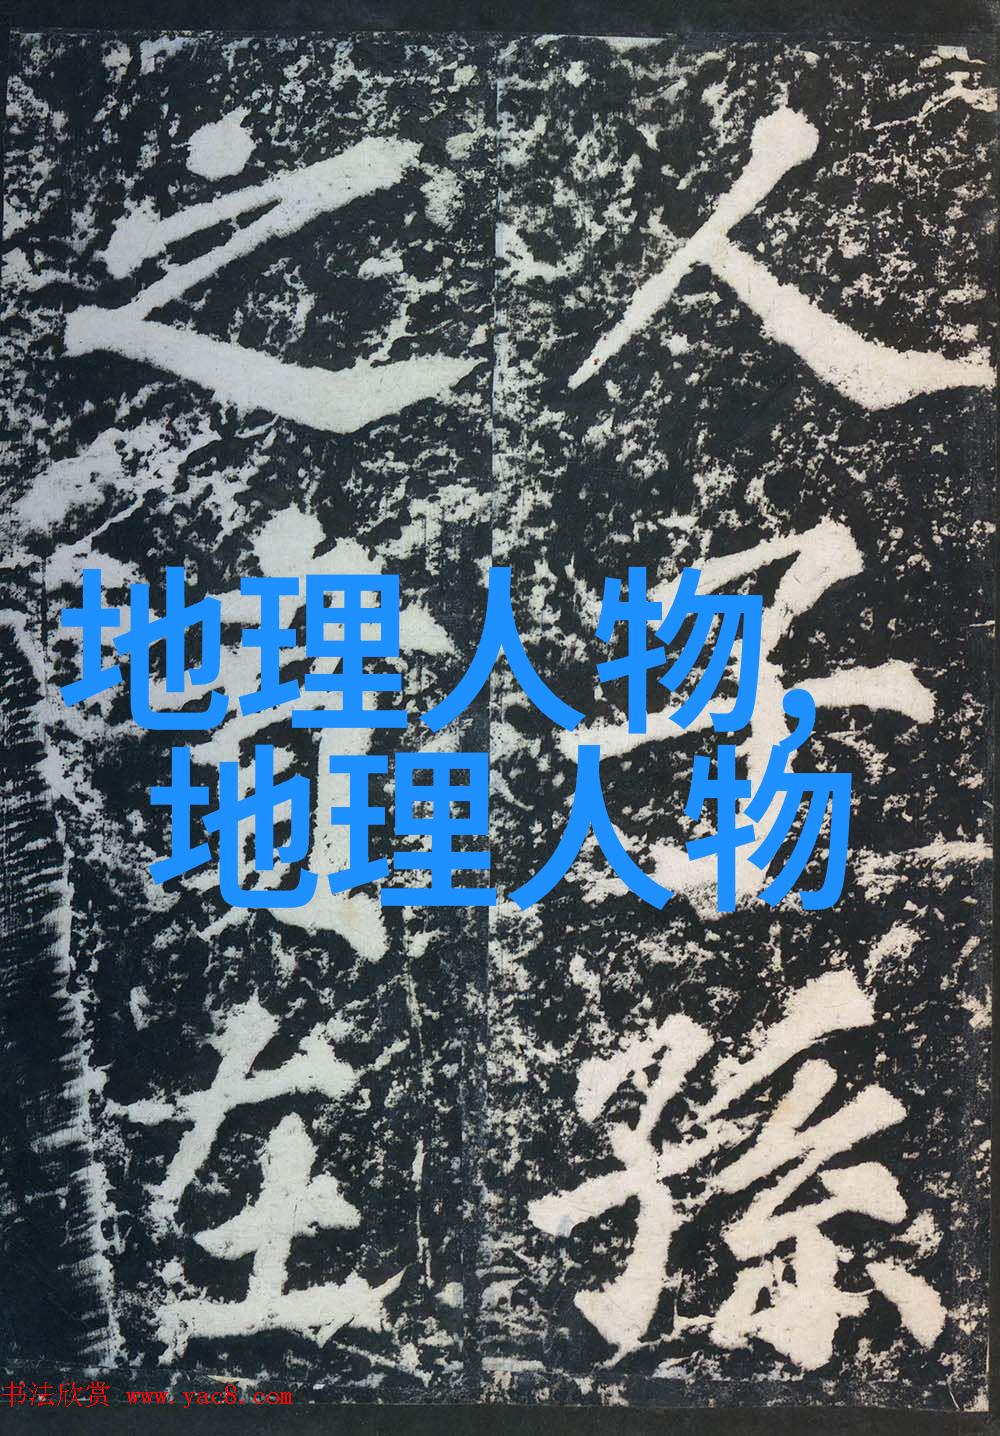 人子孫
之在
地理人物,
地理人物
书法欣赏 www.yac8.com